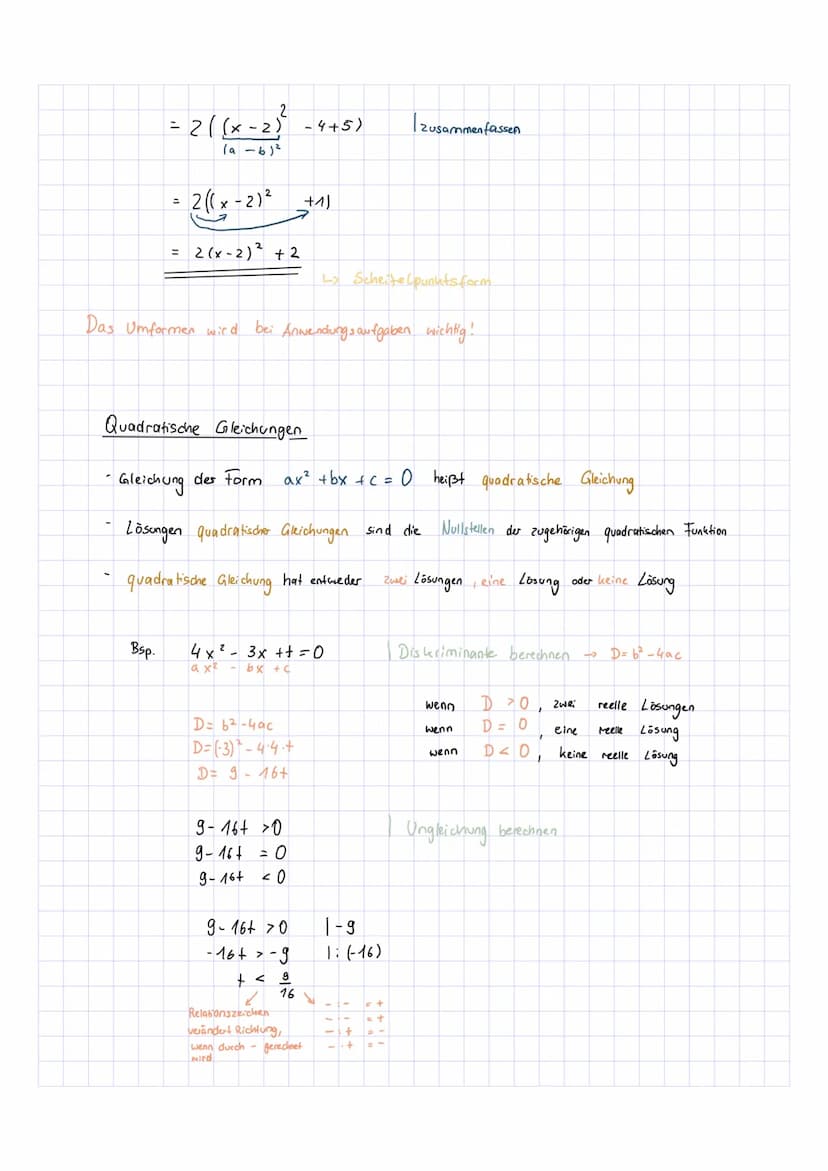 = 2((x-2)² -4+5) | zusammenfassen
(a -b)²
= 2((x-2)² +1)
= 2(x-2)² + 2
↳ Scheitelpunktsform
Das Umformen wird bei Anwendungsaufgaben wichtig!
Quadratische Gleichungen
- Gleichung der Form ax² +bx +c = 0 heißt quadratische Gleichung
- Lösungen quadratischer Gleichungen sind die Nullstellen der zugehörigen quadratischen Funktion
- quadratische Gleichung hat entweder zwei Lösungen, eine Lösung oder keine Lösung
Bsp. 4x² - 3x +t = 0 | Diskriminante berechnen → D= b² -4ac
ax² - bx +c
wenn D > 0, zwei reelle Lösungen
wenn D = 0, eine reelle Lösung
wenn D < 0, keine reelle Lösung
D= b² -4ac
D=(-3)² - 4·4·t
D= 9 - 16t
9-16t >0 | Ungleichung berechnen
9-16t = 0
9-16t < 0
9-16t >0 |-9
-16t > -9 |:(-16)
t < 9/16
Relationszeichen
verändert Richtung,
wenn durch - gerechnet
wird
- : - = +
- · - = +
- : + = -
- · + = -